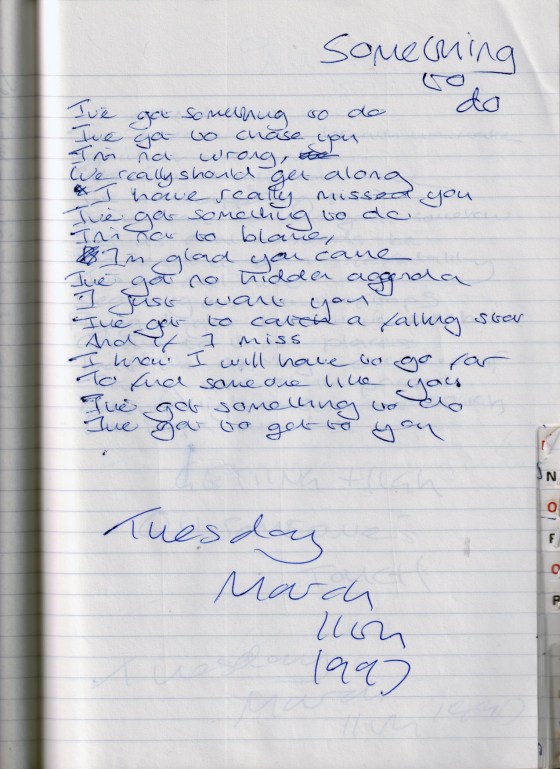 Something
to
do
I've got something to do
I've got to chase you
I'm not wrong,
We really should get along
I have really missed you
I've got something to do
I'm not to blame,
I'm glad you came
I've got no hidder aggenda
I just want you
I've got to catch a falling star
And if I miss
I know I will have to go far
To find someone like you
I've got something to do
I've got to get to you
Tuesday
March
11th
1997
N
O
F
O
P